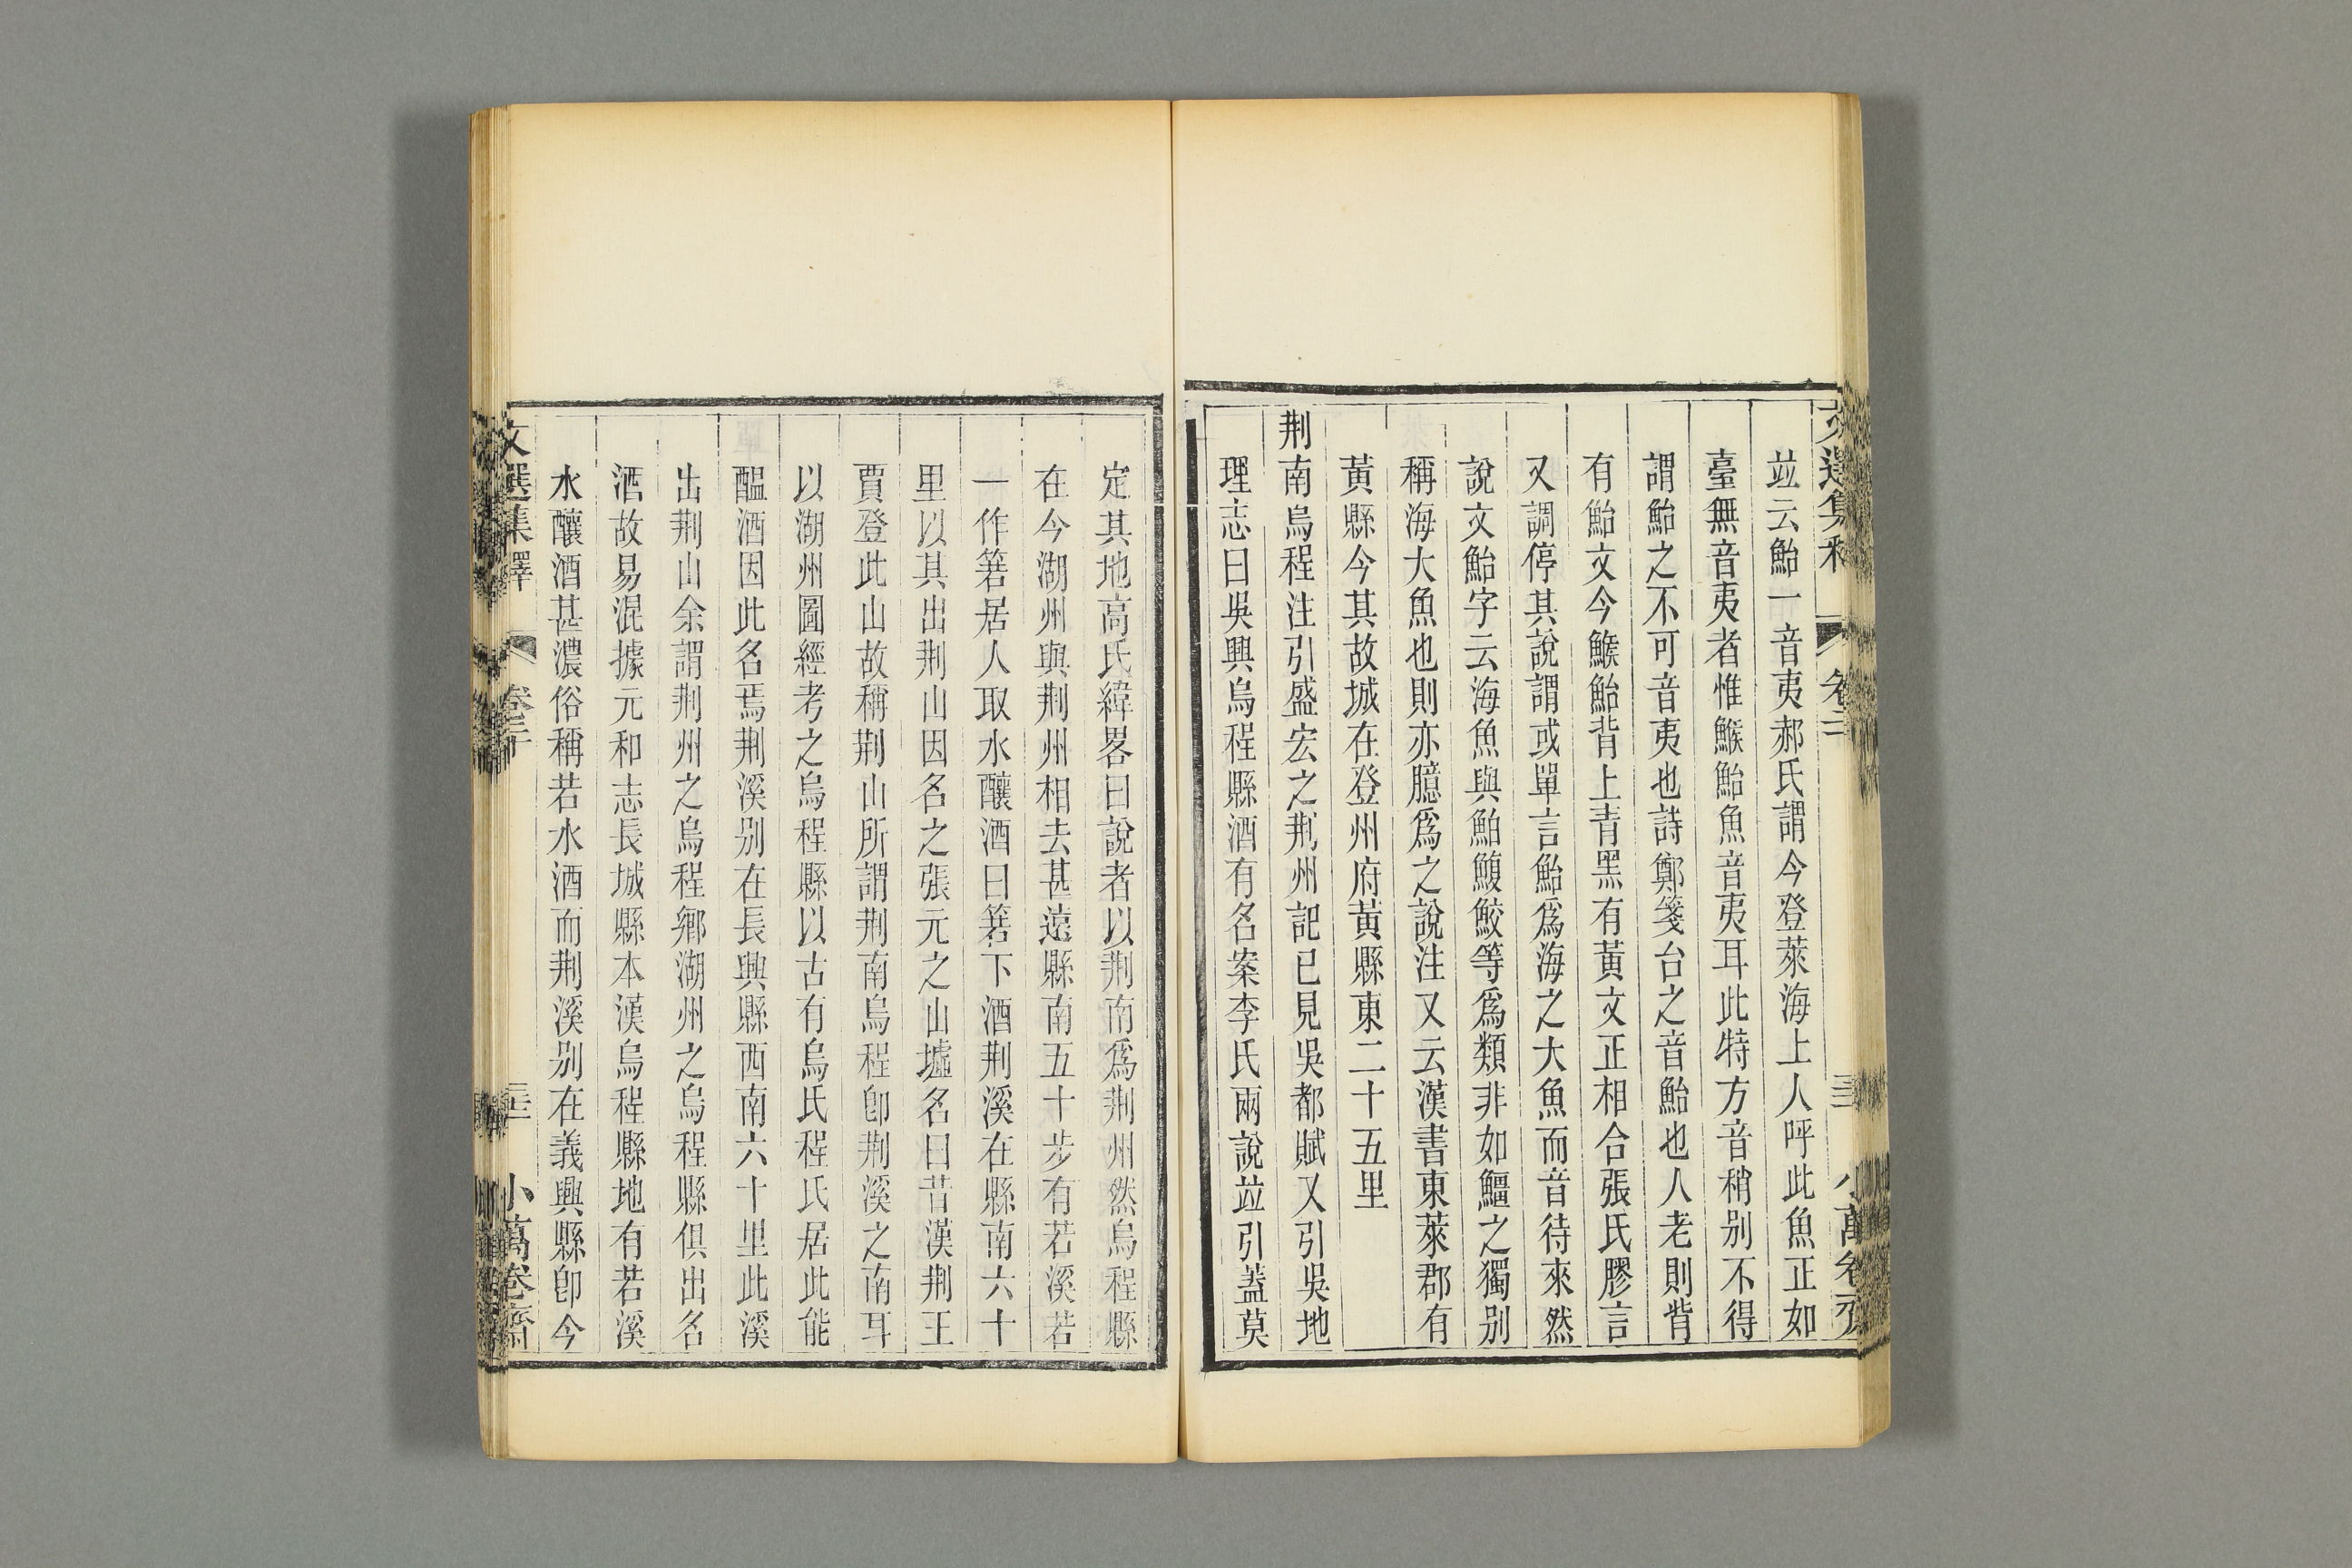 竝云鮐一音夷郝氏謂今登萊海上人呼此魚正如
臺無音夷者惟鯸鮐魚音夷耳此特方音稍别不得
謂鮐之不可音夷也詩鄭箋台之音鮐也人老則背
有鮐文今鯸鮐背上青黑有黃文正相合張氏膠言
又調停其說謂或單言鮐爲海之大魚而音待來然
說文鮐字云海魚與鮊鰒鮫等爲類非如鱷之獨别
稱海大魚也則亦臆爲之說注又云漢書東萊郡有
黃縣今其故城在登州府黃縣東二十五里
荆南烏程注引盛宏之荆州記已見吳都賦又引吳地
理志曰吳興烏程縣酒有名案李氏兩說竝引蓋莫
定其地高氏緯畧曰說者以荆南爲荆州然烏程縣
在今湖州與荆州相去甚遠縣南五十步有若溪若
一作箬居人取水釀酒曰箬下酒荆溪在縣南六十
里以其出荆山因名之張元之山墟名曰昔漢荆王
賈登此山故稱荆山所謂荆南烏程卽荆溪之南耳
以湖州圖經考之烏程縣以古有烏氏程氏居此能
醞酒因此名焉荆溪别在長興縣西南六十里此溪
出荆山余謂荆州之烏程鄉湖州之烏程縣俱出名
酒故易混據元和志長城縣本漢烏程縣地有若溪
水釀酒甚濃俗稱若水酒而荆溪别在義興縣卽今
文選集釋
卷二十
小萬卷齋